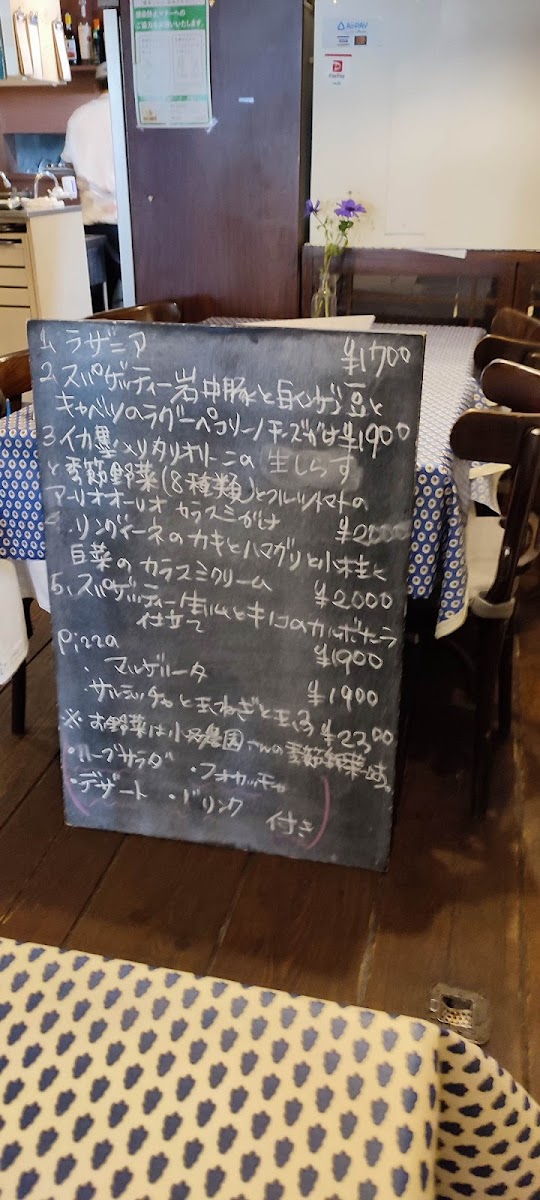 AirPAY
PayPay
ご協力をお願いいたします。
1. ラザニア ¥1700
2. スパゲッティー岩中豚と白インゲン豆と
キャベツのラグーペコリーノチーズがけ ¥1900
3 イカ墨 タリオリーニの 生しらす
と季節野菜(8種類)とフルーツトマトの
アーリオオーリオ カラスミがけ ¥2000
4. リングイーネのカキとハマグリと小柱と
白菜のカラスミクリーム ¥2000
5. スパゲッティー生ハムとキノコのカルボナーラ
仕立て ¥1900
Pizza
・マルゲリータ ¥1900
・サルシッチャと玉ねぎと玉子 ¥2300
※ お野菜は 農園さんの季節野菜です。
・ハーブサラダ ・フォカッチャ
・デザート ・ドリンク 付き